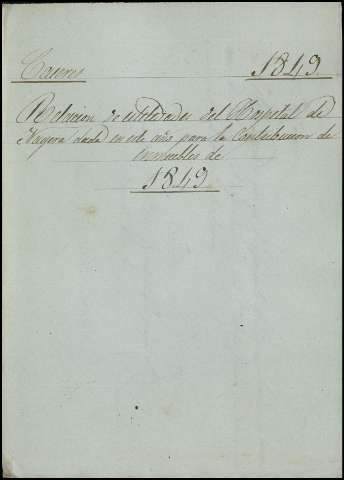 Caseres 1849.
Relacion de utilidades del Hospital de
Nagera dada en este año para la Contribucion de
inmuebles de
1849.